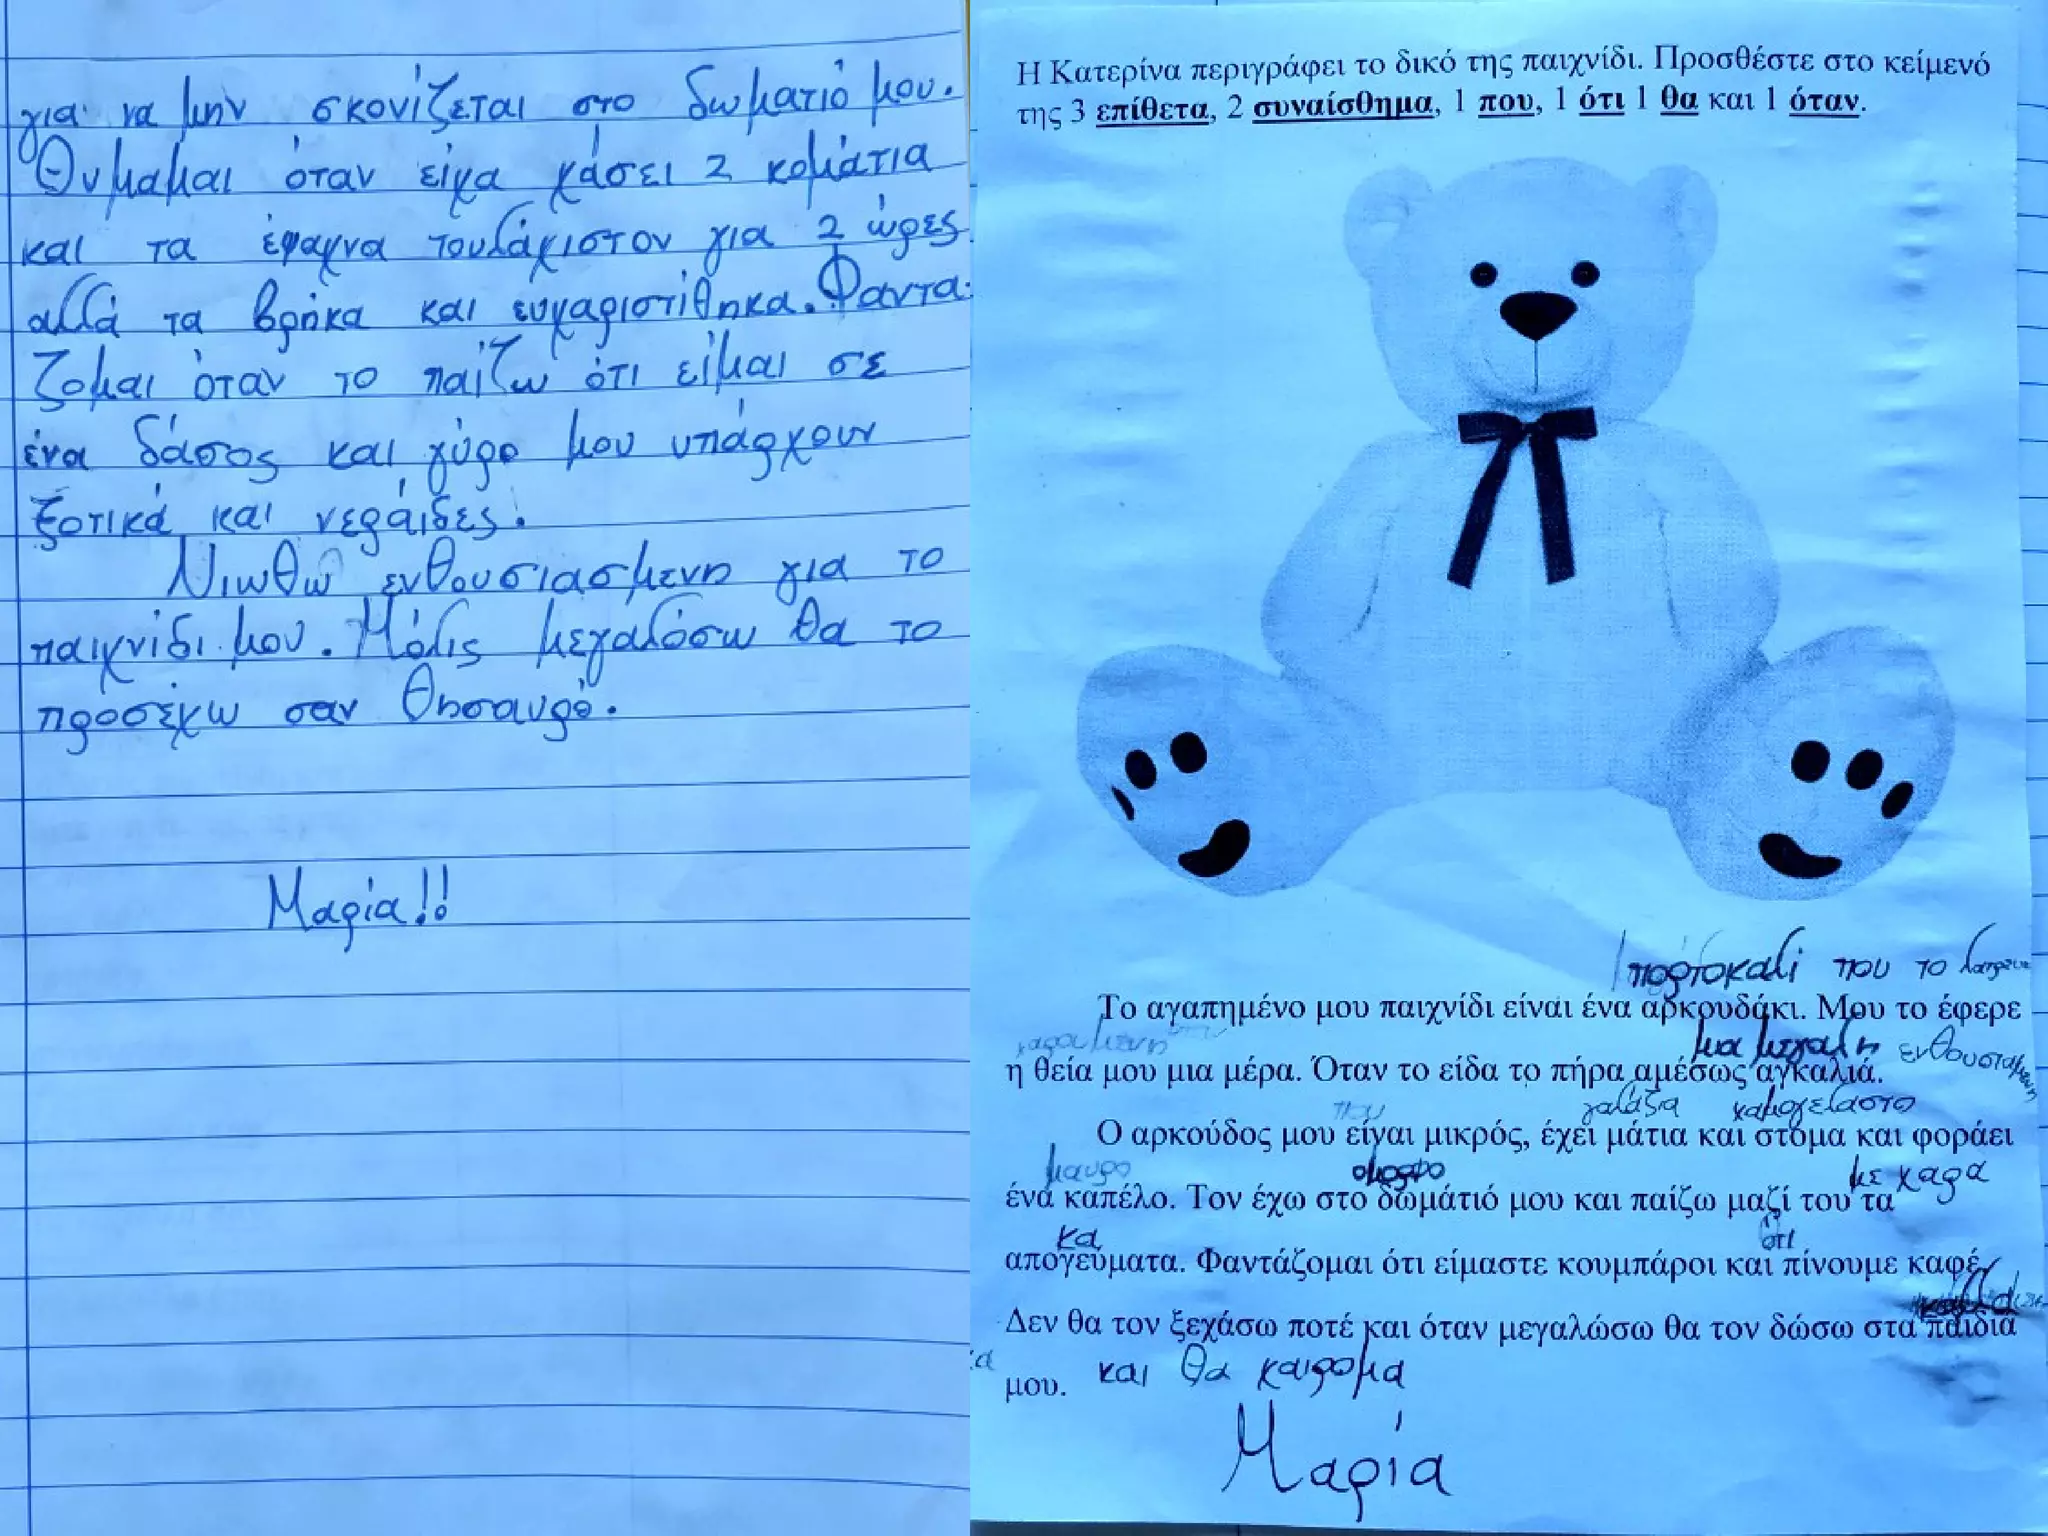 για να μην σκονίζεται στο δωματιό μου.
Θυμαμαι όταν είχα χάσει 2 κομάτια
και τα έψαχνα τουλάχιστον για 2 ώρες
αλλά τα βρήκα και ευχαριστήθηκα. Φαντα-
ζομαι όταν το παίζω ότι είμαι σε
ένα δάσος και γύρο μου υπάρχουν
ξοτικά και νεράιδες.
Νιωθω ενθουσιασμενη για το
παιχνίδι μου. Μόλις μεγαλόσω θα το
προσέχω σαν θησαυρό.
Μαρία!!
Η Κατερίνα περιγράφει το δικό της παιχνίδι. Προσθέστε στο κείμενό
της 3 επίθετα, 2 συναίσθημα, 1 που, 1 ότι 1 θα και 1 όταν.
πορτοκαλί που το
Το αγαπημένο μου παιχνίδι είναι ένα αρκουδάκι. Μου το έφερε
χαρουμενη μια μεγαλη ενθουσιαμενη
η θεία μου μια μέρα. Όταν το είδα το πήρα αμέσως αγκαλιά.
που γαλάζια χαμογελαστο
Ο αρκούδος μου είναι μικρός, έχει μάτια και στόμα και φοράει
μαυρο ομορφο με χαρα
ένα καπέλο. Τον έχω στο δωμάτιό μου και παίζω μαζί του τα
κα ότι
απογεύματα. Φαντάζομαι ότι είμαστε κουμπάροι και πίνουμε καφέ.
Δεν θα τον ξεχάσω ποτέ και όταν μεγαλώσω θα τον δώσω στα παιδιά
μου. και θα χαιρομα
Μαρία